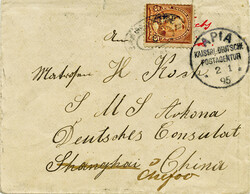 APIA
KAISERL. DEUTSCHE
POSTAGENTUR
2 1
95
Matrosen H. Kock
S M S Arkona
Deutsches Consulat
Shanghai China
Chefoo